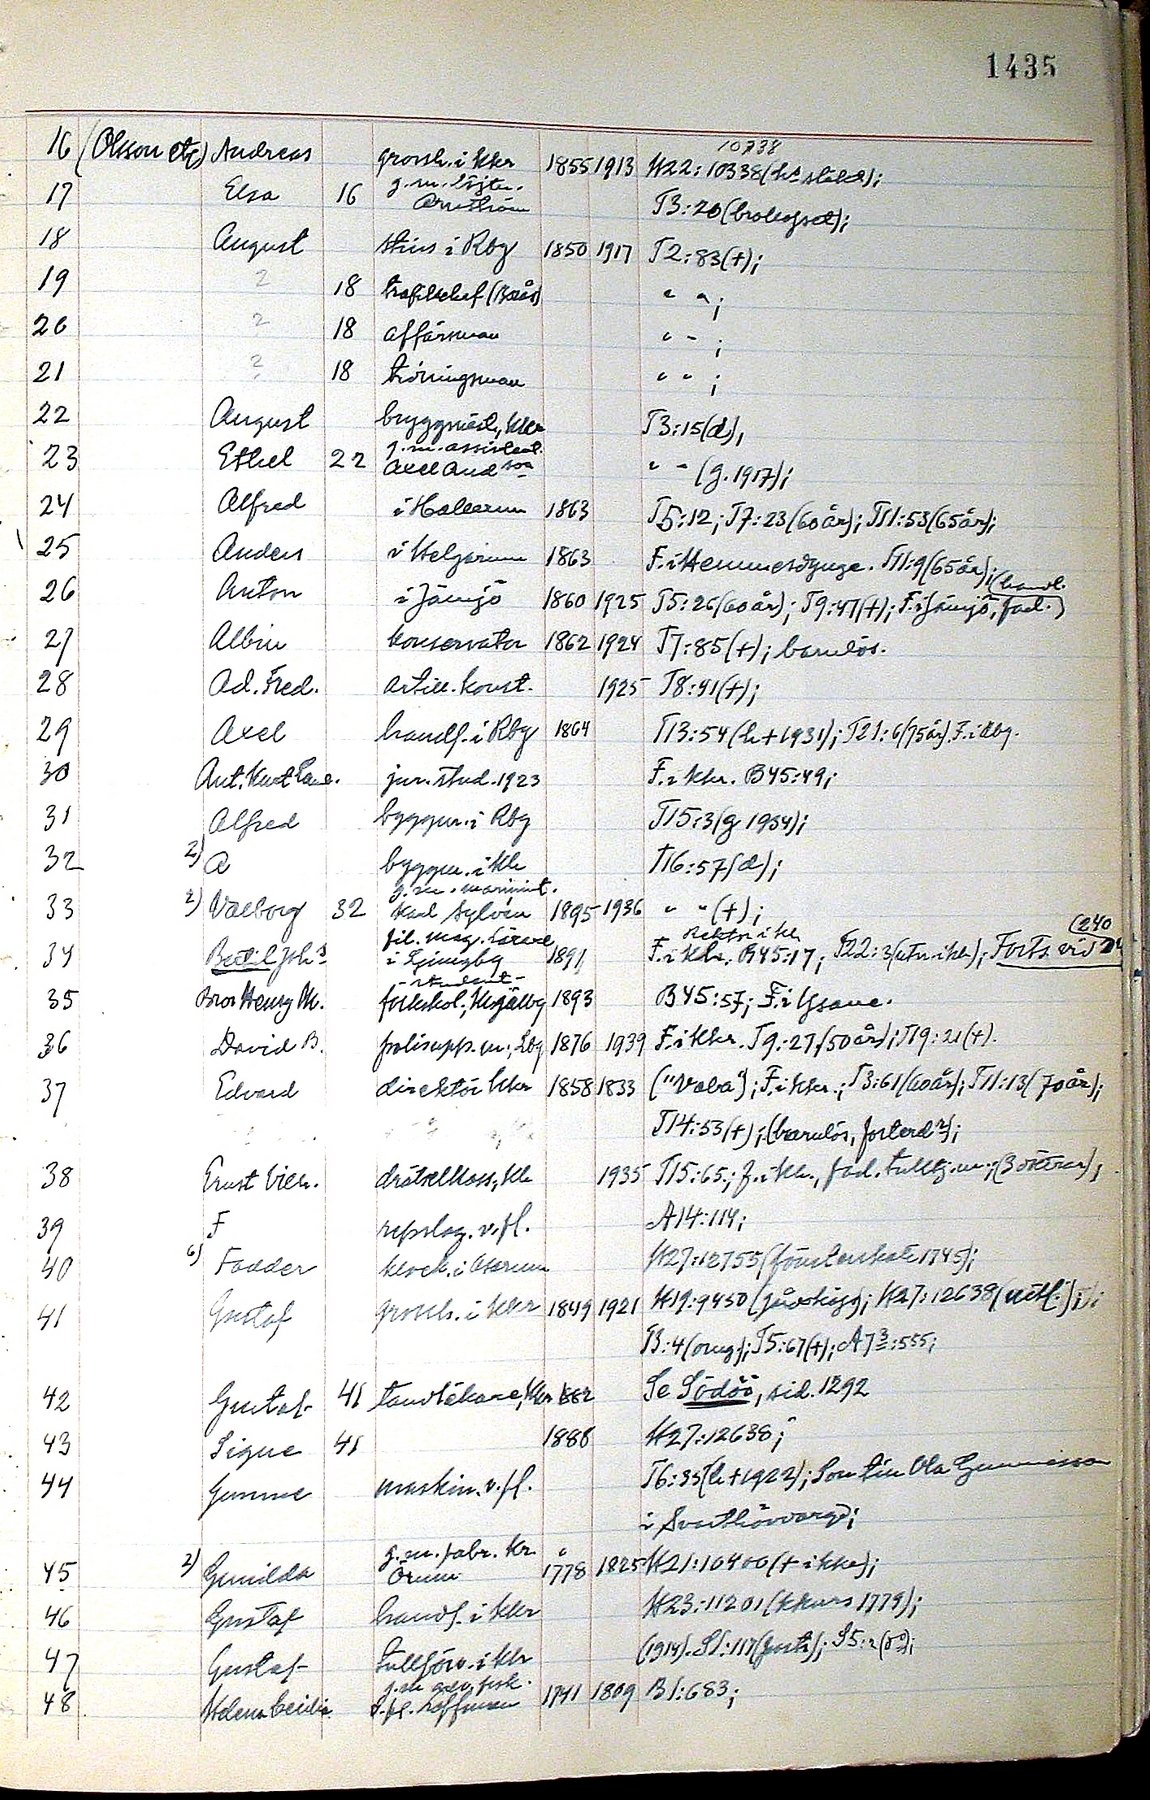 1435
16 (Olsson etc) Andreas grossh. i Khr 1855 1913 H22:10338 10738
17 Elsa 16 g.m. löjtn. Arnström T3:20
18 August i Rbg 1850 1917 T2:83(+);
19 ? 18 trafikchef (Borås) " ";
20 ? 18 affärsman " ";
21 ? 18 tidningsman " ";
22 August byggmäst, Khr T3:15(d),
23 Ethel 22 g.m. assistent Axel Andson " " (g. 1917);
24 Alfred i Hallarum 1863 T5:12; T7:23(60 år); T11:53(65 år);
25 Anders i Helgarum 1863 F. i Hemmesdynge. T11:9(65 år);
26 Anton i Jämjö 1860 1925 T5:26(60 år); T9:47(+); F. i Jämjö, (handl. fad.)
27 Albin konservator 1862 1924 T7:85(+); barnlös.
28 Ad. Fred. artill. konst. 1925 T8:41(+);
29 Axel handl. i Rbg 1864 T13:54(h+1931); T21:6(75 år). F. i Rbg.
30 Ant. Kurt jur. stud. 1923 F. i Khr. B45:49;
31 Alfred byggm. i Rbg T15:3(g 1934);
32 2) A byggm. i Khr T16:57(d);
33 2) Valborg 32 g.m. marinint. Karl Sylvén 1895 1936 " " (+);
34 Bertil Johs fil. mag. lärare i Ljungby 1891 F. i Khr. B45:17; Rektor i Khr T22:3(utn i Khr); Forts. vid (240
35 Bror Henry M. student folkskol, 1893 B45:57; F. i
36 David B. polisupps.m., Lbg 1876 1939 F. i Khr. T9:27(50 år); T19:21(+).
37 Edvard direktör Khr 1858 1833 ("Voba"); F. i Khr.; T3:61(60 år); T11:13(70 år);
T14:53(+); (barnlös, fosterd);
38 Ernst Vilh. drätselkass, Khr 1935 T15:65; f. i Khr., fad. tullvj.m.; (3 döttrar);
39 F repslag. v. fl. A14:114;
40 6) Fadder klock. i Asarum H27:12755(fönsterskatt 1745);
41 Gustaf grossh. i Khr 1849 1921 H19:9450; H27:12638
T3:4; T5:67(+); A73:555;
42 Gustaf 41 tandläkare, Khr 1882 Se Södöö, sid. 1292
43 Signe 41 1888 H27:12638;
44 Gumme maskin. v. fl. T6:35(h+1922); Son till Ola Gummesson
i
45 2) Gunilda g.m. fabr. Kr. Örum 1778 1825 H21:10400(+ i Khr);
46 Gustaf handl. i Khr H23:11201(kkurs 1779);
47 Gustaf tullförv. i Khr (1914). S1:117; S5:2
48 Helena Cecilia v. fl. Hoffman 1741 1809 B1:683;